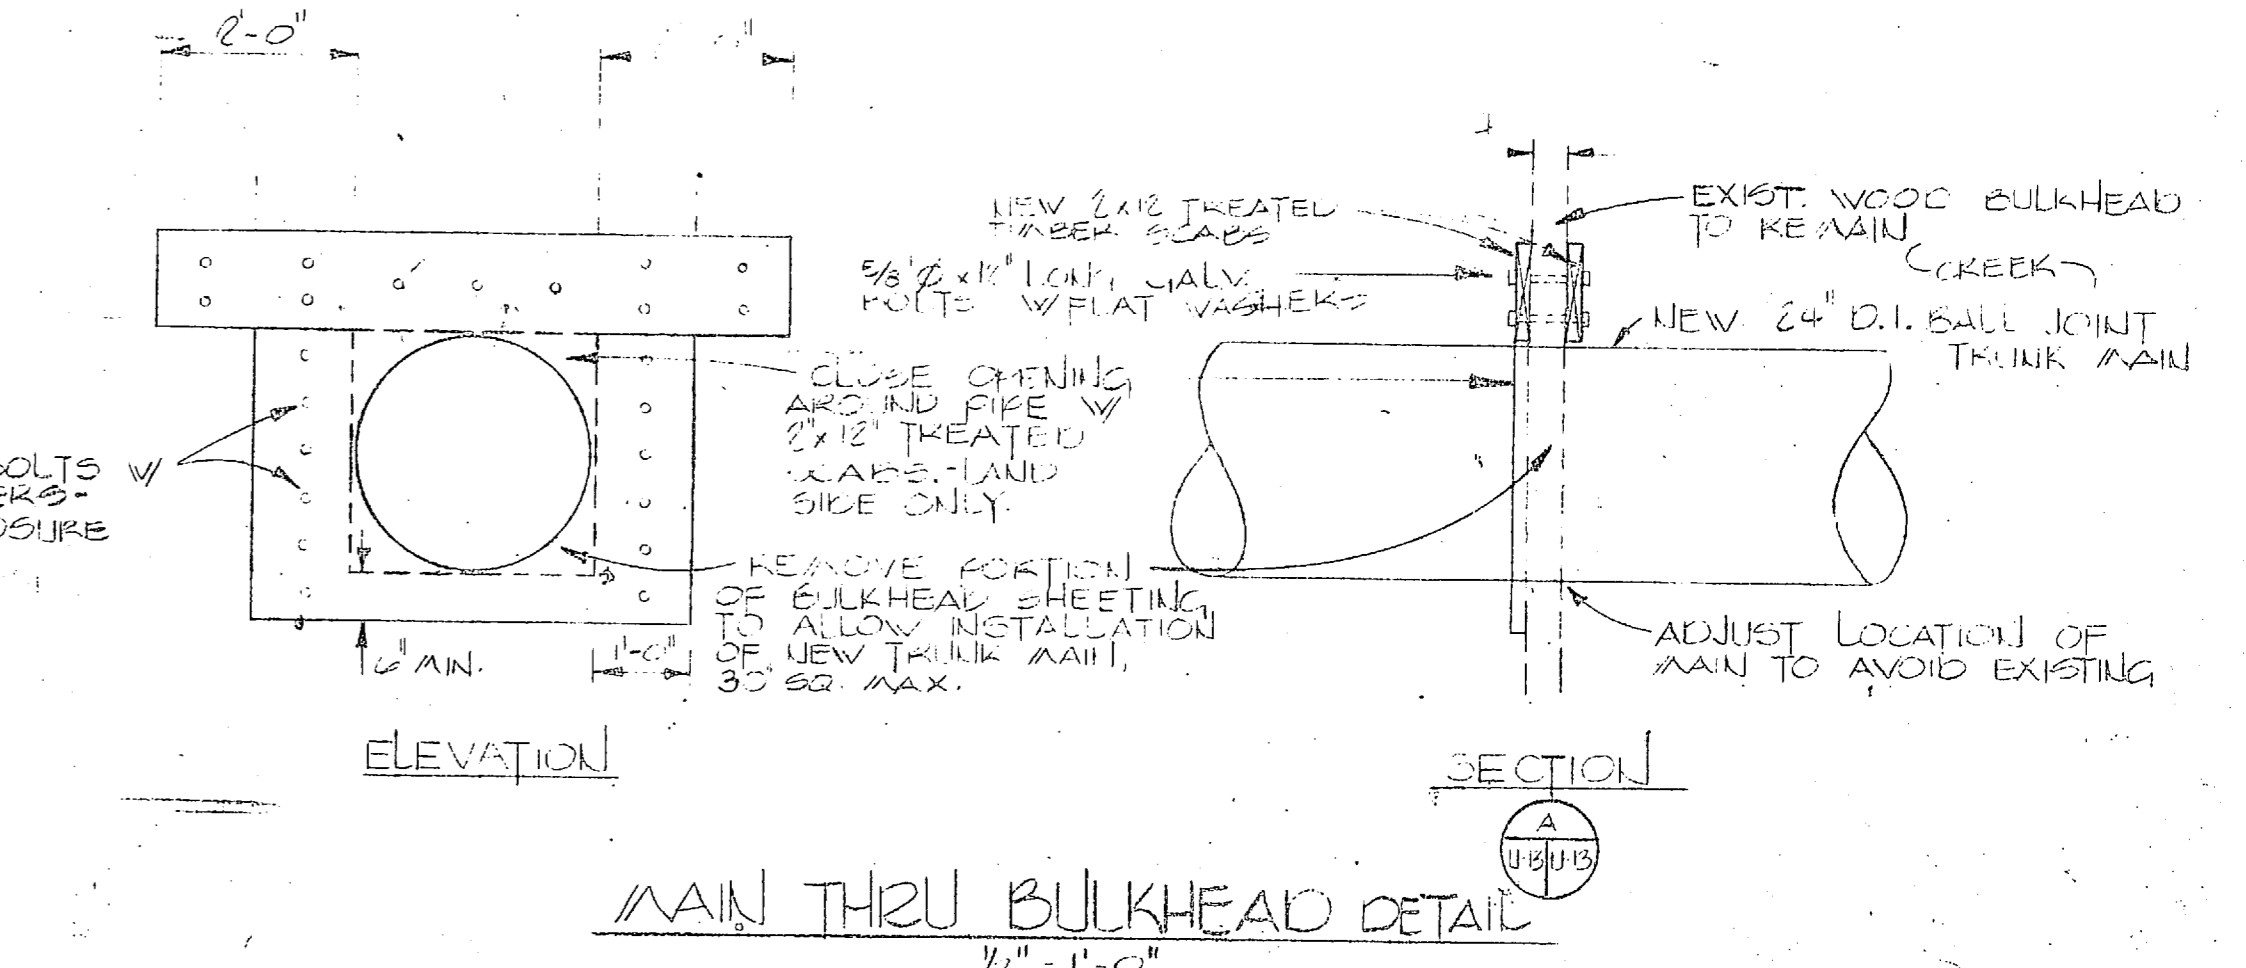 2'-0"
NEW 2x12 TREATED
TIMBER SCABS
5/8"Ø x 12" LONG GALV.
BOLTS W/FLAT WASHERS
EXIST. WOOD BULKHEAD
TO REMAIN
CREEK
NEW 24" D.I. BALL JOINT
TRUNK MAIN
CLOSE OPENING
AROUND PIPE W/
2"x12" TREATED
SCABS.-LAND
SIDE ONLY.
BOLTS W/
ERS-
OSURE
REMOVE PORTION
OF BULKHEAD SHEETING
TO ALLOW INSTALLATION
OF NEW TRUNK MAIN,
30" SQ. MAX.
6" MIN.
1'-0"
ADJUST LOCATION OF
MAIN TO AVOID EXISTING
ELEVATION
SECTION
A
U-13 U-13
MAIN THRU BULKHEAD DETAIL
1/2" - 1'-0"